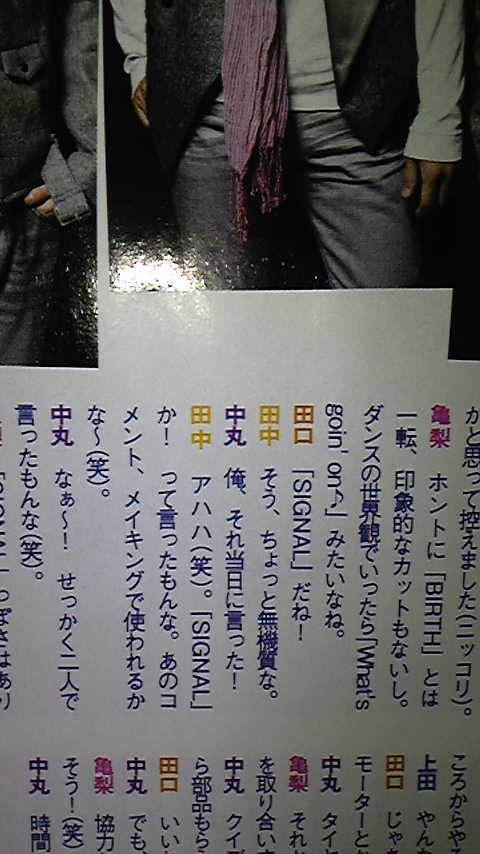 かと思って控えました(ニッコリ)。
亀梨 ホントに「BIRTH」とは
一転、印象的なカットもないし。
ダンスの世界観でいったら「What's
goin' on♪」みたいなね。
田口 「SIGNAL」だね！
田中 そう、ちょっと無機質な。
中丸 俺、それ当日に言った！
田中 アハハ(笑)。「SIGNAL」
か！ って言ったもんな。あのコ
メント、メイキングで使われるか
な〜(笑)。
中丸 なぁ〜！ せっかく二人で
言ったもんな(笑)。
ころからやる
上田 やん
田口 じゃ
モーターと
中丸 タイ
亀梨 それ
を取り合い
中丸 クイ
ら部品もら
田口 いい
中丸 でも、
亀梨 協力
そう！(笑)
中丸 時間